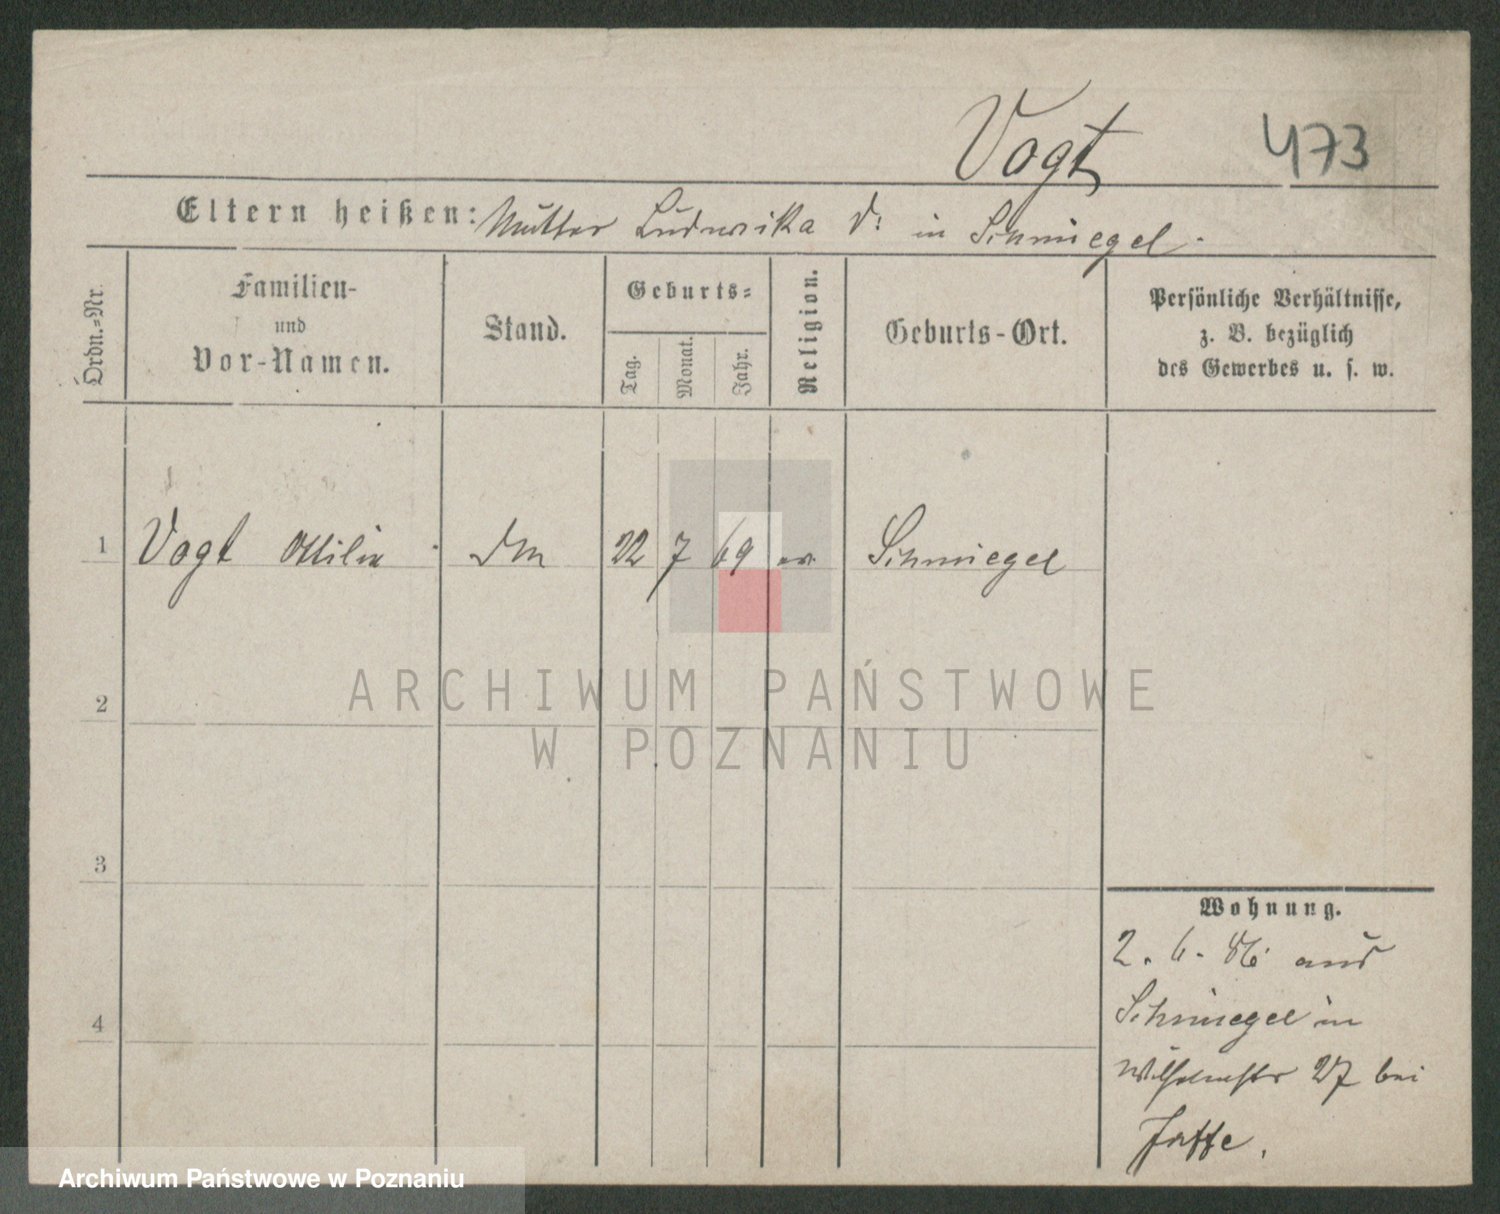 Vogt 473
Eltern heißen: Mutter Ludwika V: in Schmiegel.
Ordn.=Nr.
Familien-
und
Vor-Namen.
Stand.
Geburts=
Tag.
Monat.
Jahr.
Religion.
Geburts-Ort.
Persönliche Verhältnisse,
z. B. bezüglich
des Gewerbes u. s. w.
1 Vogt Ottilia 22 7 69 Schmiegel
ARCHIWUM PAŃSTWOWE
W POZNANIU
2
3
4
Wohnung.
2. 6. 86 aus
Schmiegel in
Wilhelmstr 27 bei
Jaffe.
Archiwum Państwowe w Poznaniu